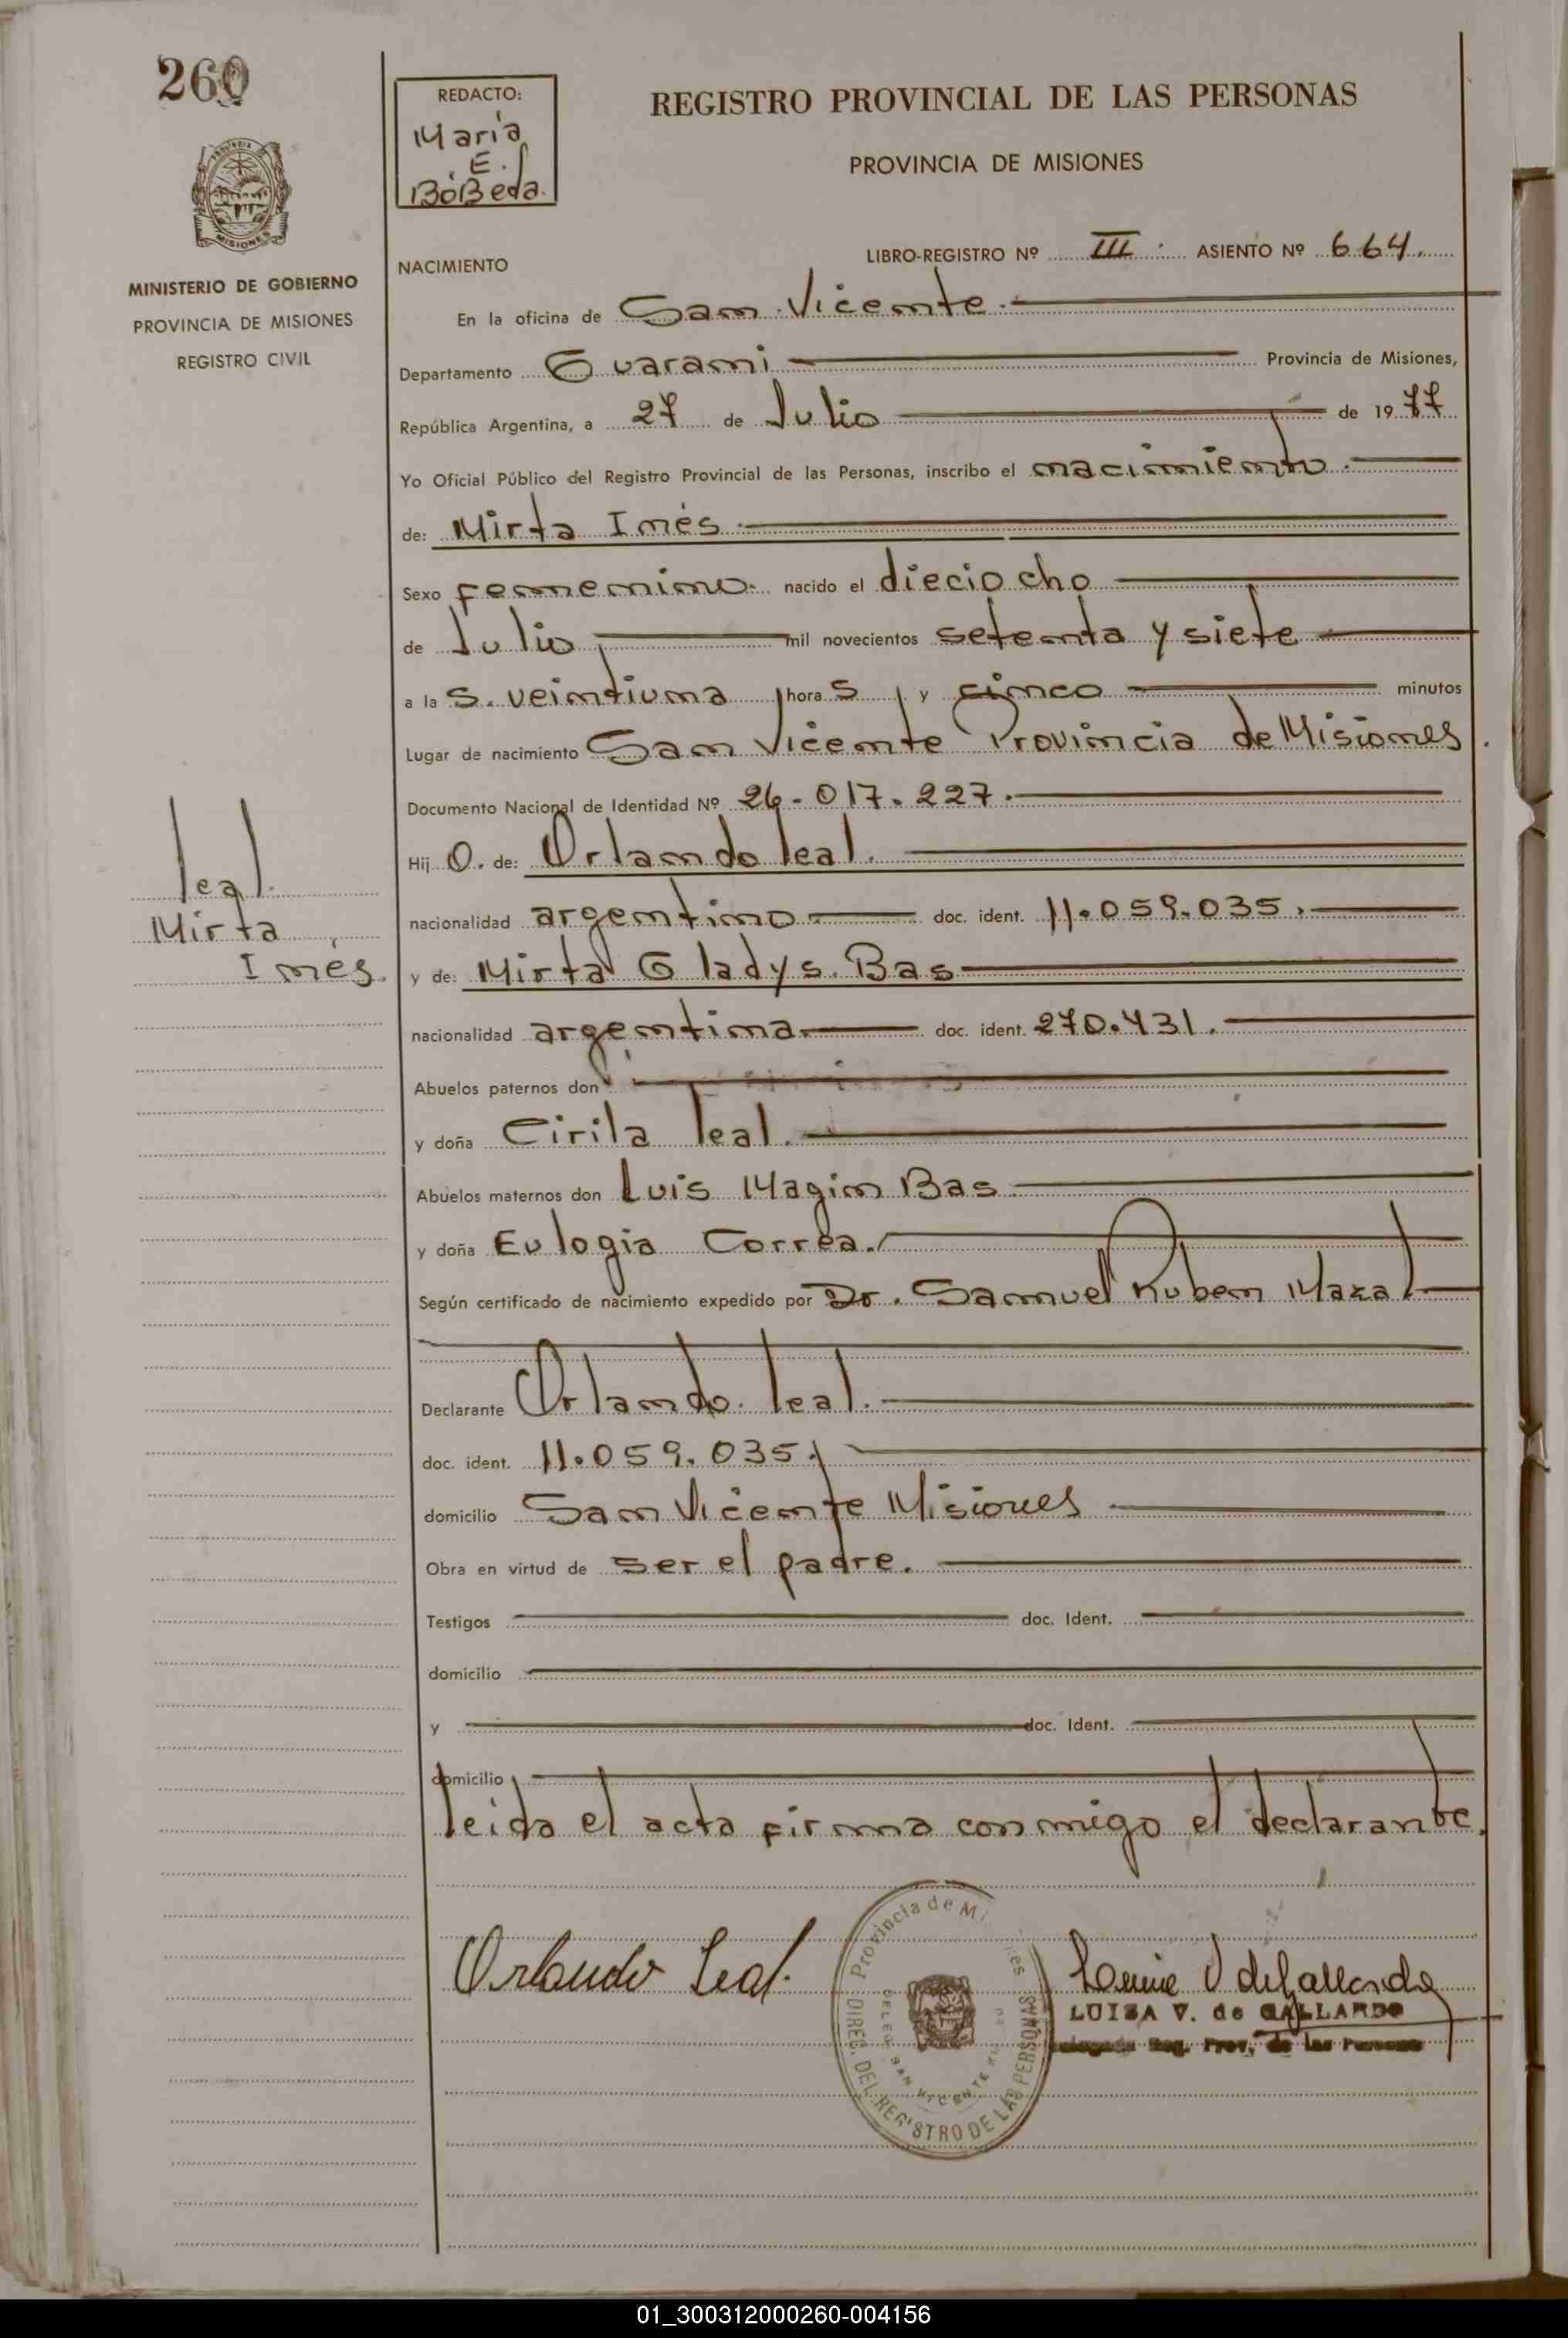 260
REDACTO:
María
E.
BóBeda.
REGISTRO PROVINCIAL DE LAS PERSONAS
PROVINCIA DE MISIONES
MISIONES
MINISTERIO DE GOBIERNO
PROVINCIA DE MISIONES
REGISTRO CIVIL
LIBRO-REGISTRO Nº III. ASIENTO Nº 664.
NACIMIENTO
En la oficina de San Vicente.
Departamento Guarani Provincia de Misiones,
República Argentina, a 27 de Julio de 1977
Yo Oficial Público del Registro Provincial de las Personas, inscribo el nacimiento.
de: Mirta Inés.
Sexo femenino. nacido el dieciocho
de Julio mil novecientos setenta y siete
a la s. veintiuna hora s y cinco minutos
Lugar de nacimiento San Vicente Provincia de Misiones.
Documento Nacional de Identidad Nº 26-017.227.
Hij o. de: Orlando Leal.
nacionalidad argentino doc. ident. 11.059.035.
y de: Mirta Gladys. Bas
nacionalidad argentina. doc. ident. 270.431.
Leal.
Mirta
Inés.
Abuelos paternos don
y doña Cirila Leal.
Abuelos maternos don Luis Magin Bas
y doña Eulogia Correa.
Según certificado de nacimiento expedido por Dr. Samuel Ruben Mazal
Declarante Orlando. Leal.
doc. ident. 11.059.035.
domicilio San Vicente Misiones
Obra en virtud de ser el padre.
Testigos doc. Ident.
domicilio
y doc. Ident.
domicilio
leida el acta firma conmigo el declarante.
Orlando Leal.
Provincia de Misiones
DIREC. DEL REGISTRO DE LAS PERSONAS
SAN VICENTE
LUISA V. de GALLARDO
Reg. Prov. de las Personas
01_300312000260-004156